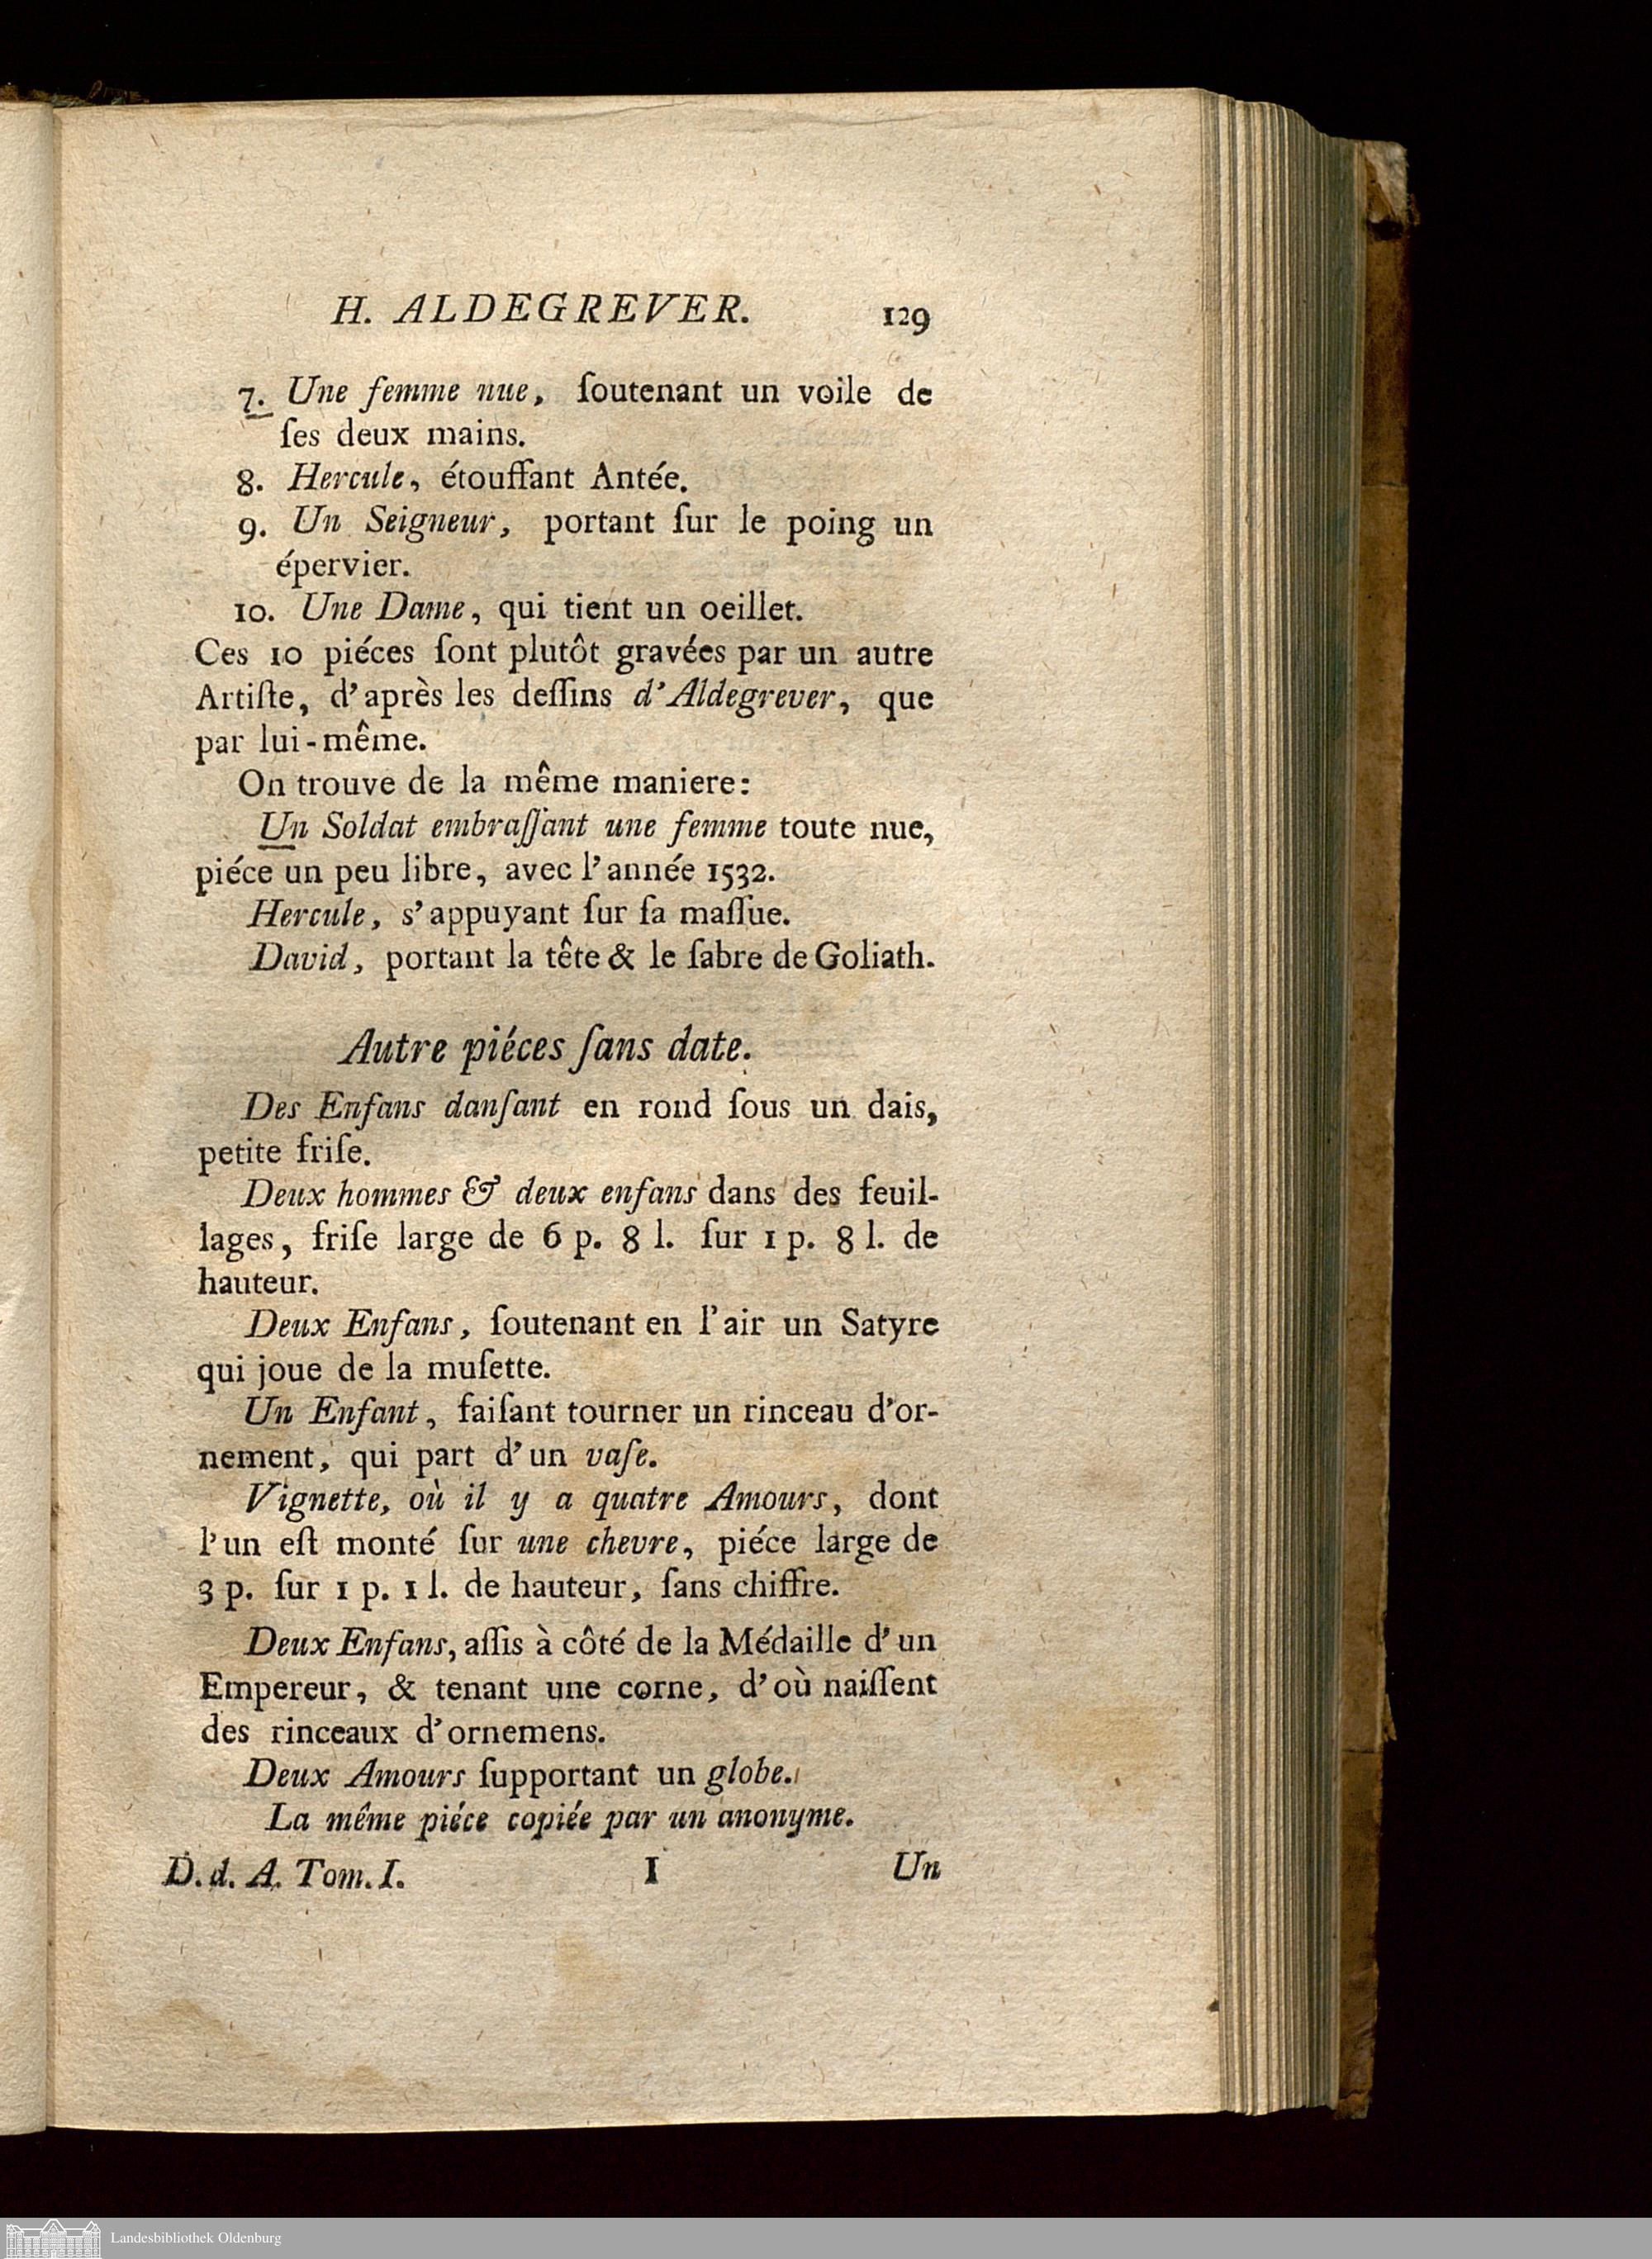 H. ALDEGREVER. 129
7. Une femme nue, ſoutenant un voile de
ſes deux mains.
8. Hercule, étouffant Antée.
9. Un Seigneur, portant ſur le poing un
épervier.
10. Une Dame, qui tient un oeillet.
Ces 10 piéces ſont plutôt gravées par un autre
Artiſte, d'après les deſſins d'Aldegrever, que
par lui-même.
On trouve de la même maniere:
Un Soldat embraſſant une femme toute nue,
piéce un peu libre, avec l'année 1532.
Hercule, s'appuyant ſur ſa maſſue.
David, portant la tête & le ſabre de Goliath.
Autre piéces ſans date.
Des Enfans danſant en rond ſous un dais,
petite friſe.
Deux hommes & deux enfans dans des feuil-
lages, friſe large de 6 p. 8 l. ſur 1 p. 8 l. de
hauteur.
Deux Enfans, ſoutenant en l'air un Satyre
qui joue de la muſette.
Un Enfant, faiſant tourner un rinceau d'or-
nement, qui part d'un vaſe.
Vignette, où il y a quatre Amours, dont
l'un eſt monté ſur une chevre, piéce large de
3 p. ſur 1 p. 1 l. de hauteur, ſans chiffre.
Deux Enfans, aſſis à côté de la Médaille d'un
Empereur, & tenant une corne, d'où naiſſent
des rinceaux d'ornemens.
Deux Amours ſupportant un globe.
La même piéce copiée par un anonyme.
D. d. A. Tom. I. I Un
Landesbibliothek Oldenburg